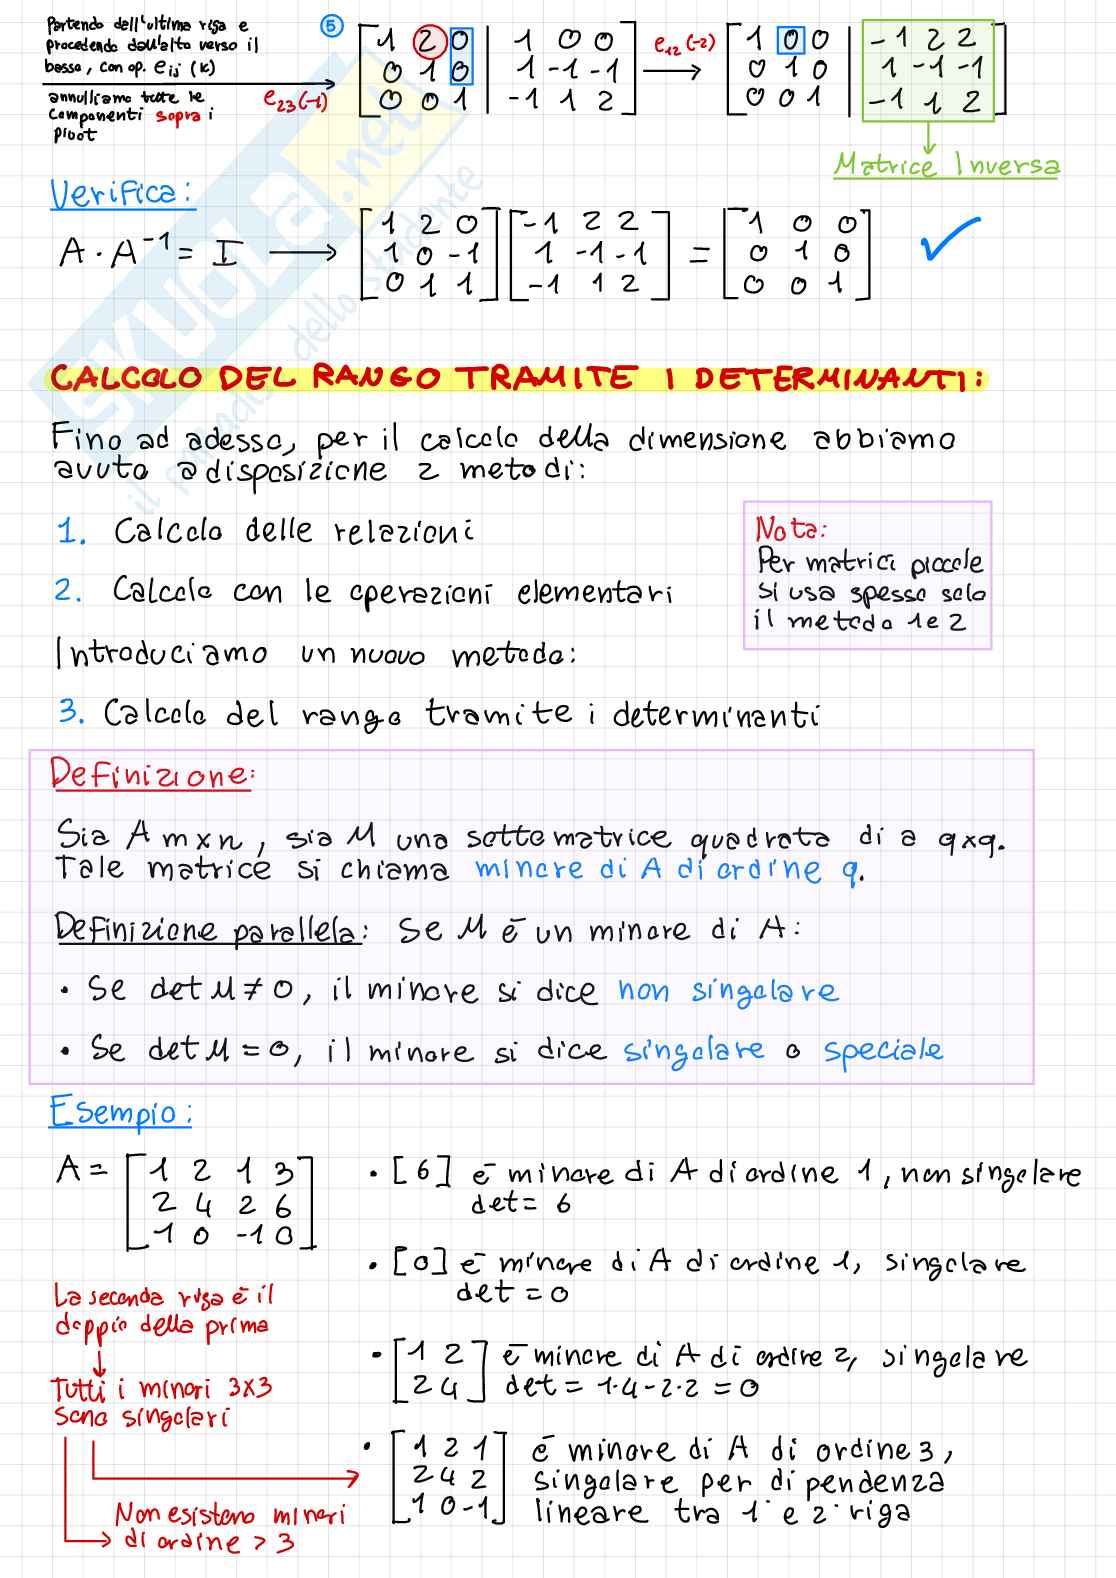 Partendo dell'ultima riga e
procedendo dall'alto verso il
basso, con op. eij (k)
annulliamo tutte le
componenti sopra i
pivot
e23(-1)
5
[1 2 0 | 1 0 0
0 1 0 | 1 -1 -1
0 0 1 | -1 1 2]
e12(-2)
[1 0 0 | -1 2 2
0 1 0 | 1 -1 -1
0 0 1 | -1 1 2]
Matrice Inversa
Verifica:
A · A⁻¹ = I → [1 2 0 [-1 2 2 = [1 0 0
1 0 -1 1 -1 -1 0 1 0
0 1 1] -1 1 2] 0 0 1] ✓
CALCOLO DEL RANGO TRAMITE I DETERMINANTI:
Fino ad adesso, per il calcolo della dimensione abbiamo
avuto a disposizione 2 metodi:
1. Calcolo delle relazioni
2. Calcolo con le operazioni elementari
Nota:
Per matrici piccole
si usa spesso solo
il metodo 1 e 2
Introduciamo un nuovo metodo:
3. Calcolo del rango tramite i determinanti
Definizione:
Sia A m×n, sia M una sottomatrice quadrata di a q×q.
Tale matrice si chiama minore di A di ordine q.
Definizione parallela: Se M è un minore di A:
• Se det M ≠ 0, il minore si dice non singolare
• Se det M = 0, il minore si dice singolare o speciale
Esempio:
A = [1 2 1 3
2 4 2 6
1 0 -1 0]
La seconda riga è il
doppio della prima
↓
Tutti i minori 3x3
sono singolari
Non esistono minori
di ordine > 3
• [6] è minore di A di ordine 1, non singolare
det = 6
• [0] è minore di A di ordine 1, singolare
det = 0
• [1 2 è minore di A di ordine 2, singolare
2 4] det = 1·4-2·2 = 0
• [1 2 1 è minore di A di ordine 3,
2 4 2 singolare per dipendenza
1 0 -1] lineare tra 1ª e 2ª riga
SKUOLA.net
il paradiso dello studente